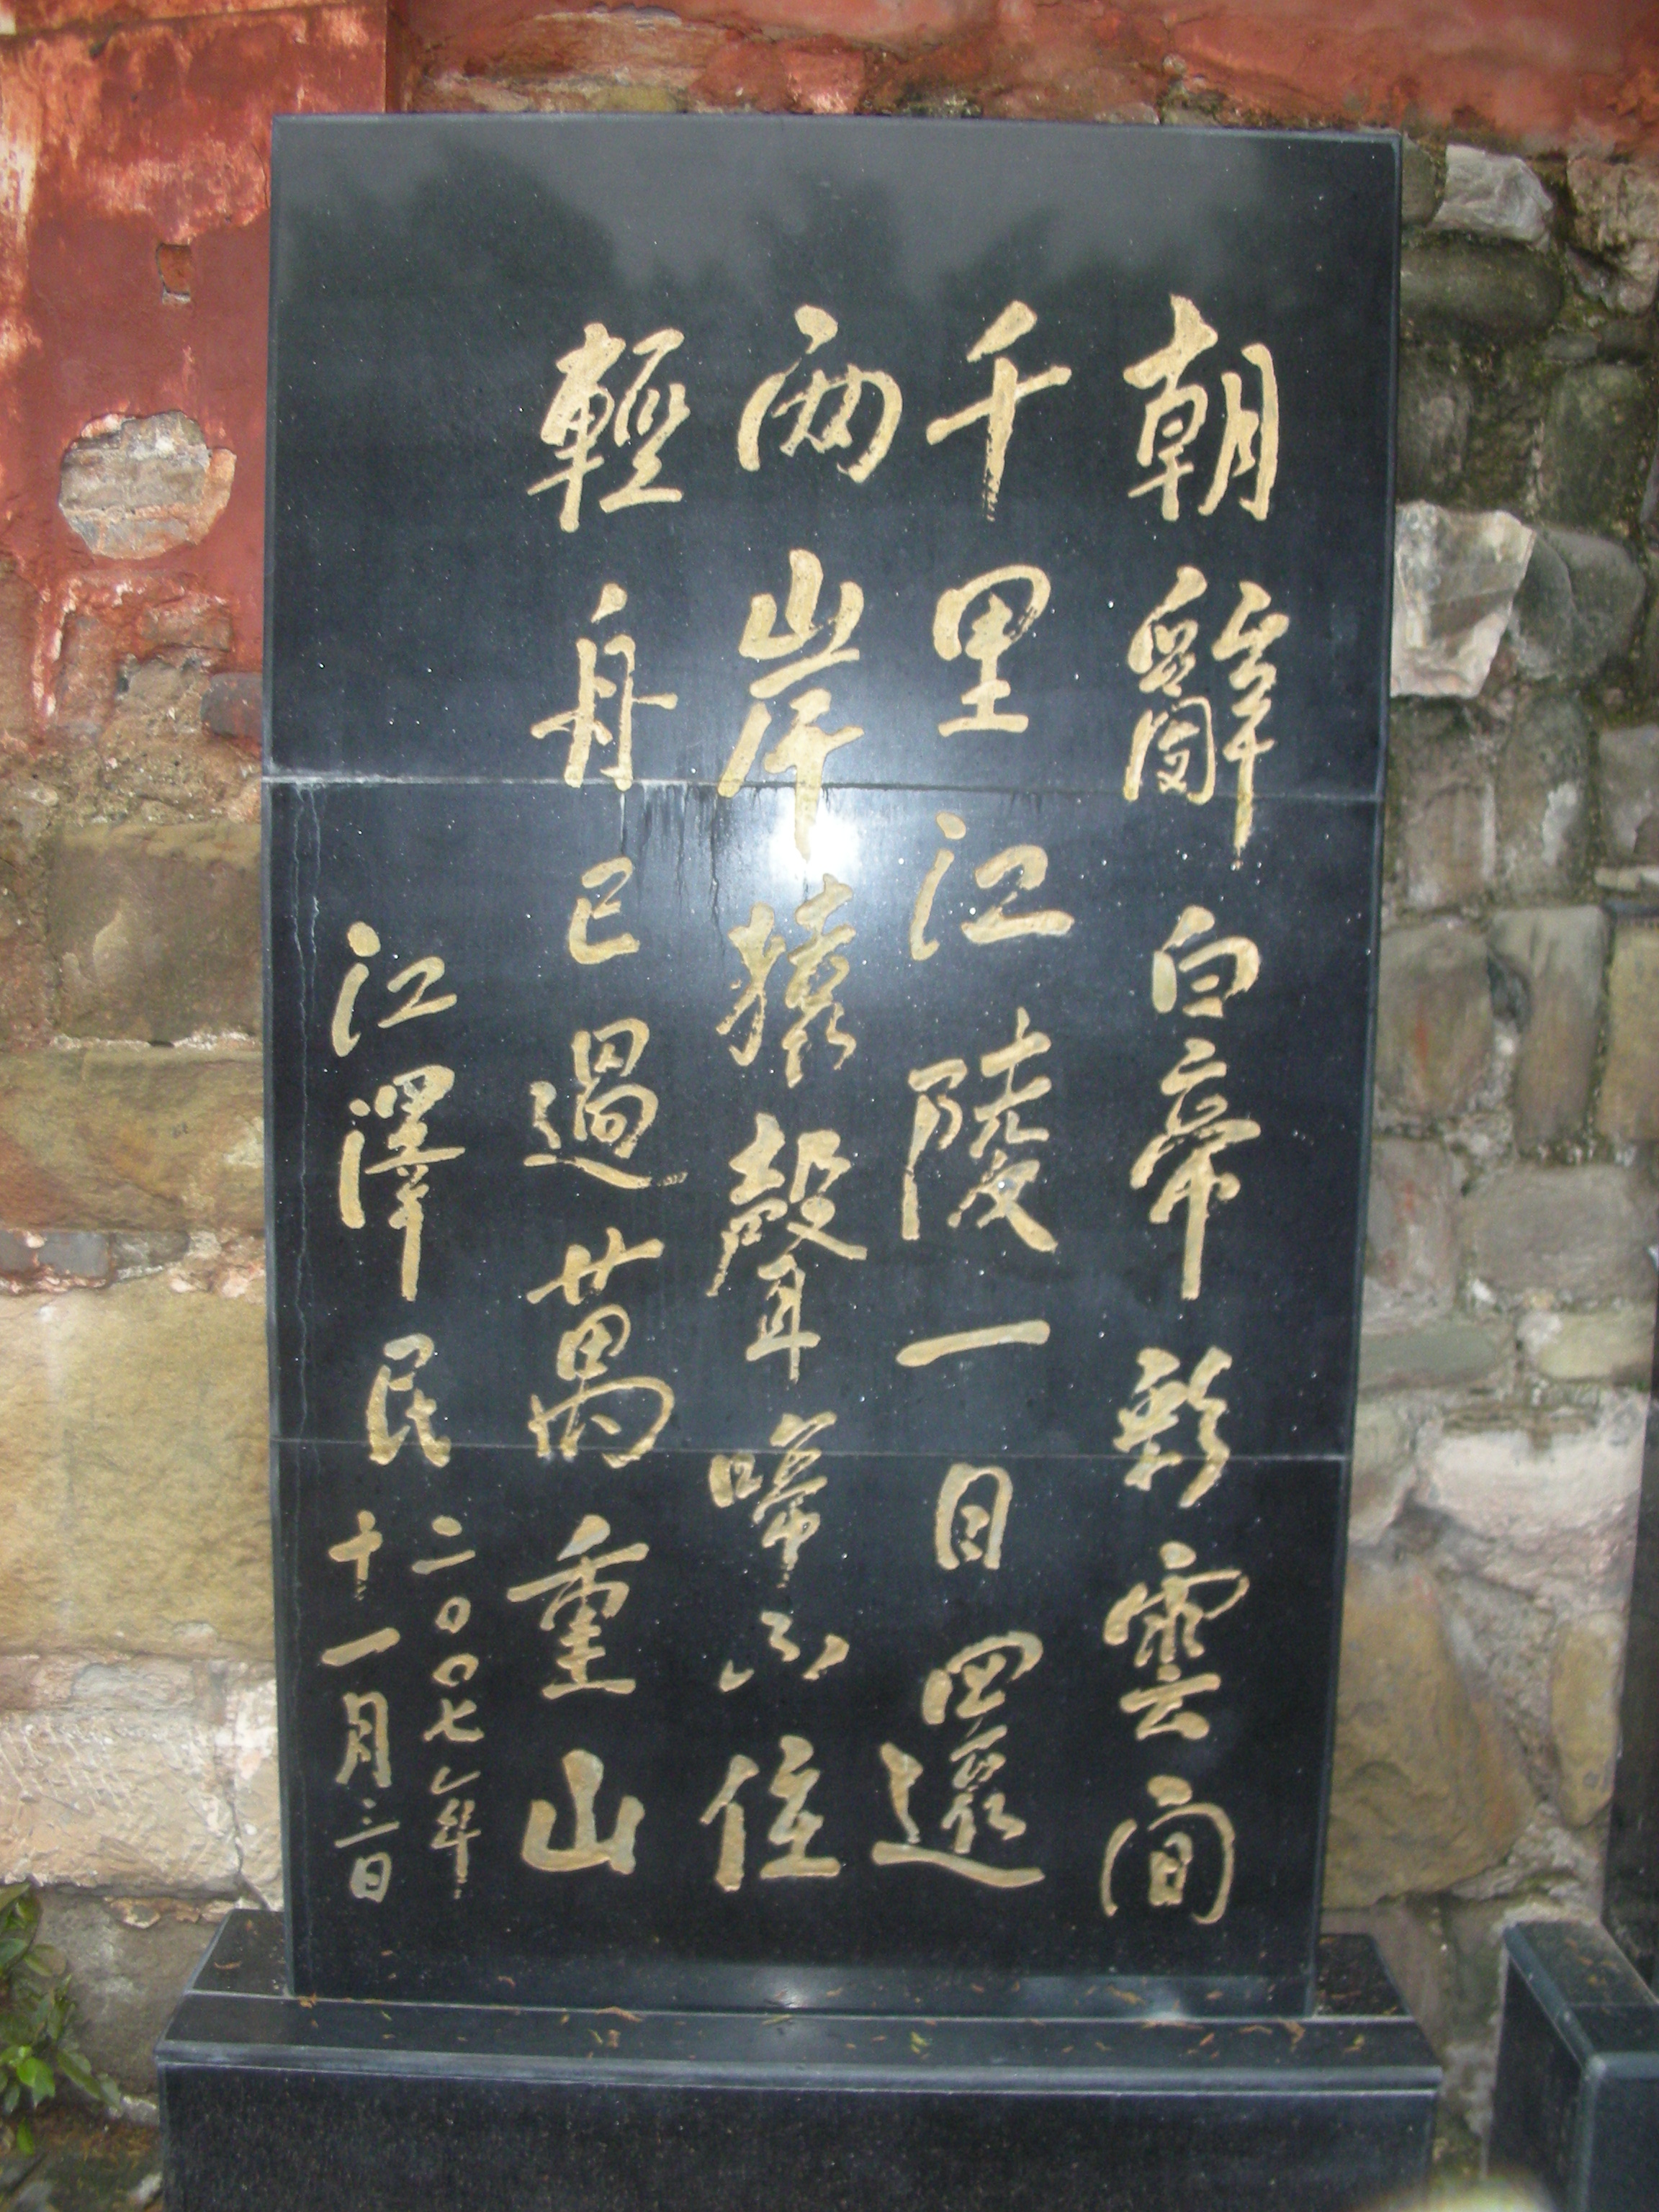 朝辭白帝彩雲間
千里江陵一日回還
兩岸猿聲啼不住
輕舟已過萬重山
江澤民
二〇〇七年
十一月三日